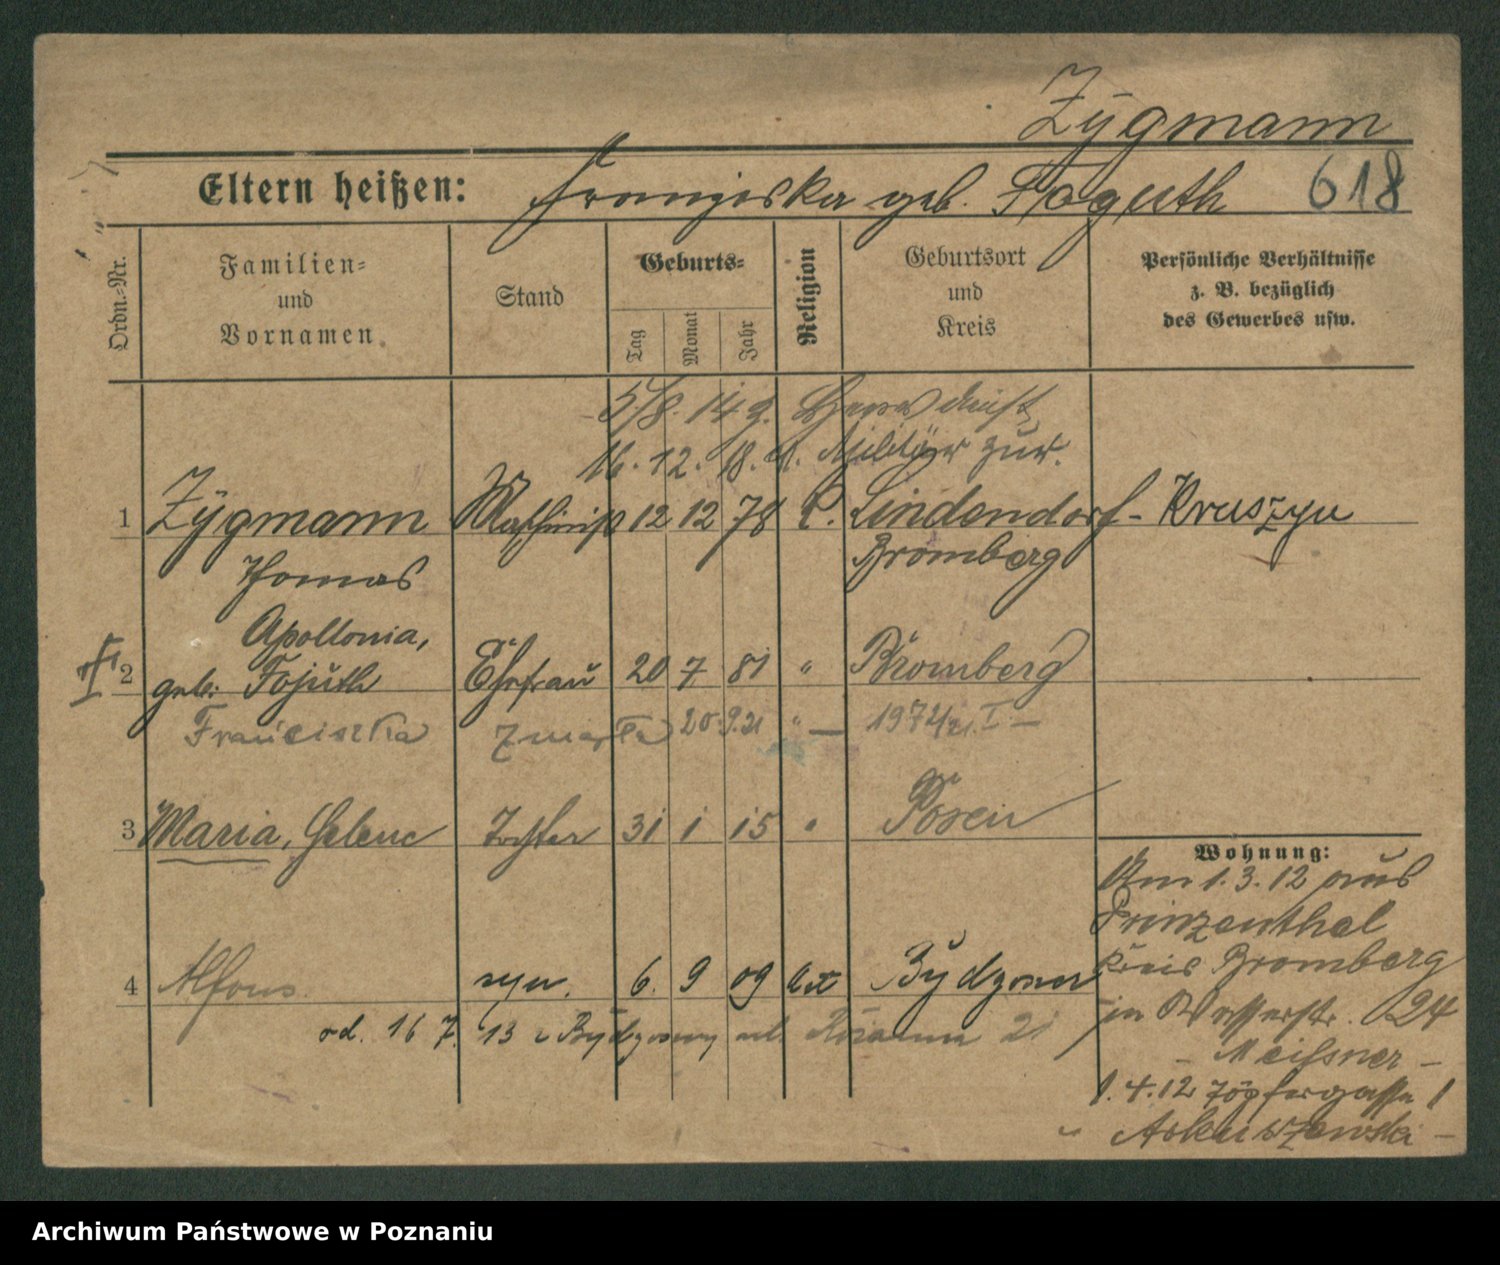 Zÿgmann
Eltern heißen: Franziska geb. Foguth 618
Ordn.-Nr.
Familien-
und
Vornamen
Stand
Geburts-
Tag
Monat
Jahr
Religion
Geburtsort
und
Kreis
Persönliche Verhältnisse
z. B. bezüglich
des Gewerbes usw.
5/8. 14 z.
16. 12. 18. Militär zur.
1 Zÿgmann 12 12 78 k. Lindendorf - Kruszyn
Thomas Bromberg
Apollonia,
2 geb. Fojuth Ehefrau 20 7 81 " Bromberg
Franciszka zmarła 20.9.21 " — 1974/21. I —
3 Maria, Helene Tochter 31 1 15 " Posen
Wohnung:
Am 1.3.12 aus
Prinzenthal
Kreis Bromberg
4 Alfons syn. 6. 9 09 kat Bydgoszcz
in Wasserstr. 24
od. 16 7. 13 z Bydgoszczy ul. 2
Meißner -
1. 4. 12 Töpfergasse 1